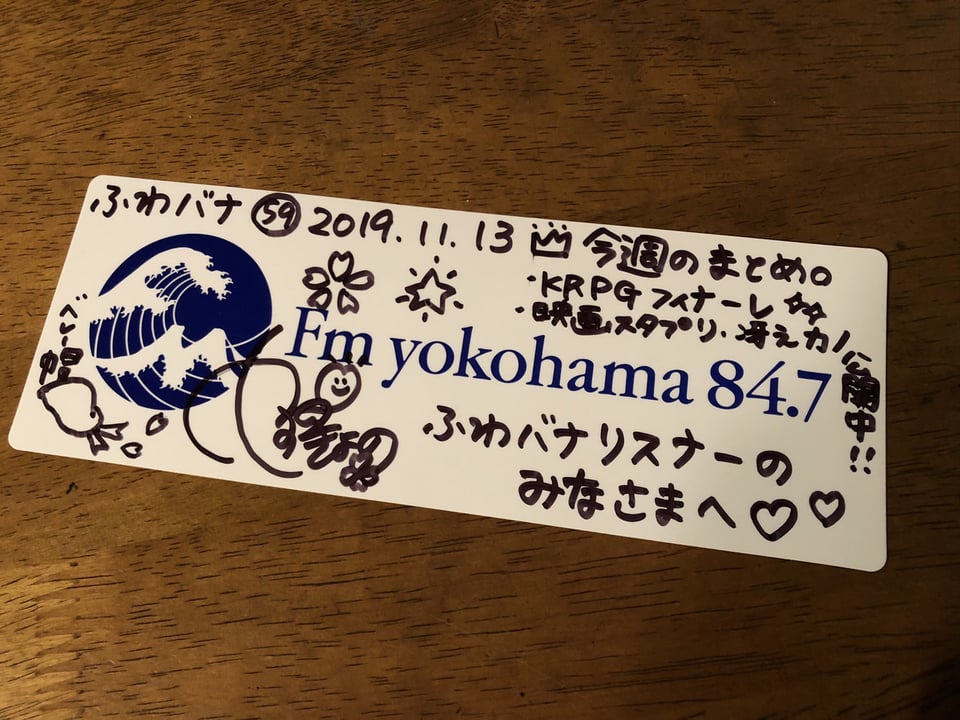 ふわバナ 59 2019.11.13 今週のまとめ。
・KRPG フィナーレ
・映画スタプリ、冴えカノ公開中!!
Fm yokohama 84.7
ベレー帽
ふわバナリスナーの
みなさまへ